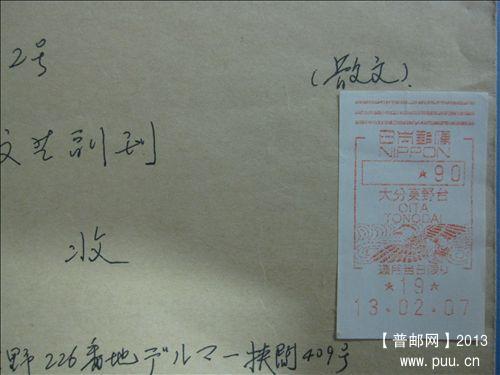 2号
(散文)
文艺副刊
收
野226番地デルマー挾間409号
日本郵便
NIPPON
*90
大分東野台
OITA
TONODAI
*19*
13.02.07
【普邮网】2013
www.puu.cn